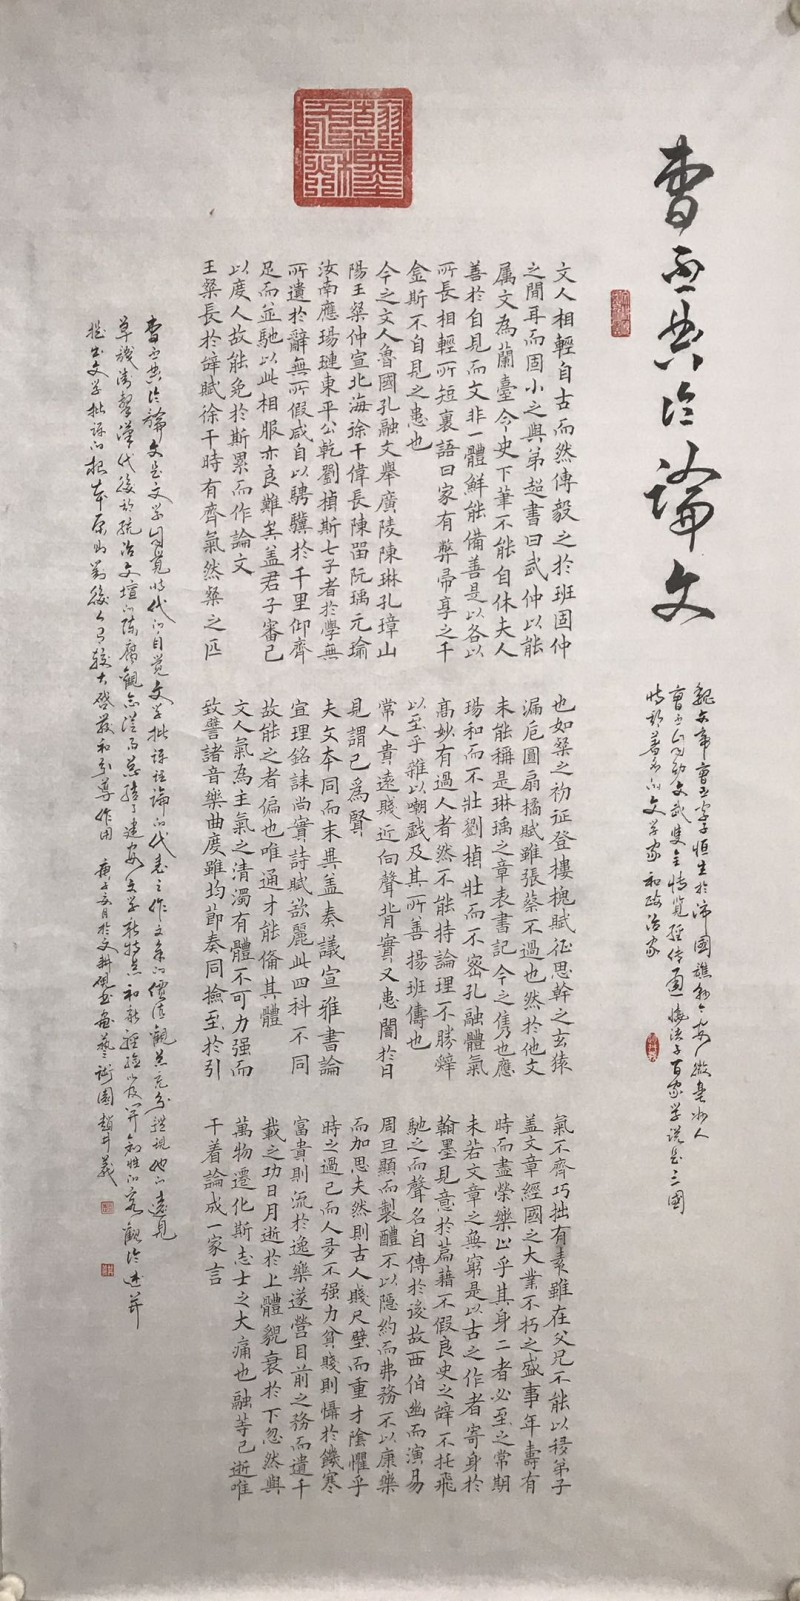 曹丕典论論文
魏文帝曹丕字子恒生於沛國譙郡今安徽亳州人
曹丕自幼文武雙全博览经传通曉諸子百家学说是三國
時期著名的文学家和政治家
文人相輕自古而然傅毅之於班固仲
之間耳而固小之與弟超書曰武仲以能
属文為蘭臺令史下筆不能自休夫人
善於自見而文非一體鮮能備善是以各以
所長相輕所短裏語曰家有弊帚享之千
金斯不自見之患也
今之文人魯國孔融文舉廣陵陳琳孔璋山
陽王粲仲宣北海徐干偉長陳留阮瑀元瑜
汝南應瑒璉東平公乾劉楨斯七子者於學無
所遺於辭無所假咸自以騁驥於千里仰齊
足而並馳以此相服亦良難矣盖君子審己
以度人故能免於斯累而作論文
王粲長於辭賦徐干時有齊氣然粲之匹
也如粲之初征登樓槐賦征思幹之玄猿
漏卮圓扇橘賦雖張蔡不過也然於他文
未能稱是琳瑀之章表書記今之雋也應
瑒和而不壯劉楨壯而不密孔融體氣
高妙有過人者然不能持論理不勝辭
以至乎雜以嘲戲及其所善揚班儔也
常人貴遠賤近向聲背實又患闇於日
見謂己為賢
夫文本同而末異盖奏議宣雅書論
宜理銘誄尚實詩賦欲麗此四科不同
故能之者偏也唯通才能備其體
文人氣為主氣之清濁有體不可力强而
致譬諸音樂曲度雖均節奏同撿至於引
氣不齊巧拙有素雖在父兄不能以移弟子
盖文章經國之大業不朽之盛事年壽有
時而盡榮樂止乎其身二者必至之常期
未若文章之無窮是以古之作者寄身於
翰墨見意於篇藉不假良史之辭不托飛
馳之而聲名自傳於後故西伯幽而演易
周旦顯而製醴不以隱約而弗務不以康樂
而加思夫然則古人賤尺壁而重才陰懼乎
時之過已而人多不强力貧賤則懾於饑寒
富貴則流於逸樂遂營目前之務而遺千
載之功日月逝於上體貌衰於下忽然與
萬物遷化斯志士之大痛也融等已逝唯
干着論成一家言
曹丕典论論文是文学自覺時代的自觉文学批评理論的代表之作文章的價值觀点充分體現他的遠見
卓識衝擊漢代後於統治文壇的陈腐觀念從而总結了建安文学新特点和新經驗以及開創性的客觀论述并
提出文学批评的根本原则對後人有较大啓發和引導作用 庚子五月於文耕硯书画藝術園趙斗義